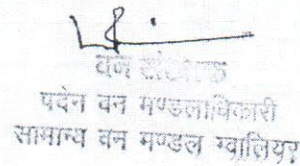 वन संरक्षक
पदेन वन मण्डलाधिकारी
सामान्य वन मण्डल ग्वालियर